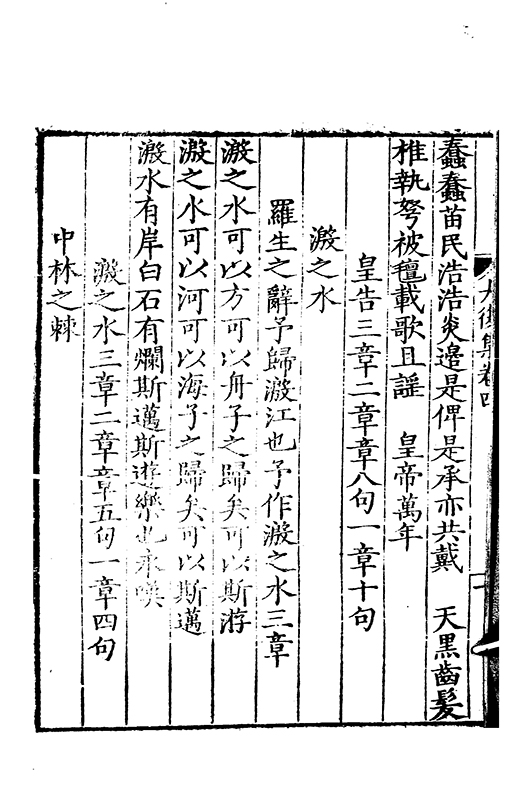 蠢蠢苗民浩浩炎邉是俾是承亦共戴　天黒齒髮
椎執弩被氊載歌且謡　皇帝萬年
皇告三章二章章八句一章十句
濲之水
羅生之辭予歸濲江也予作濲之水三章
濲之水可以方可以舟子之歸矣可以斯游
濲之水可以河可以海子之歸矣可以斯邁
濲水有岸白石有爛斯邁斯遊樂且永嘆
濲之水三章二章章五句一章四句
中林之棘
大復集卷四